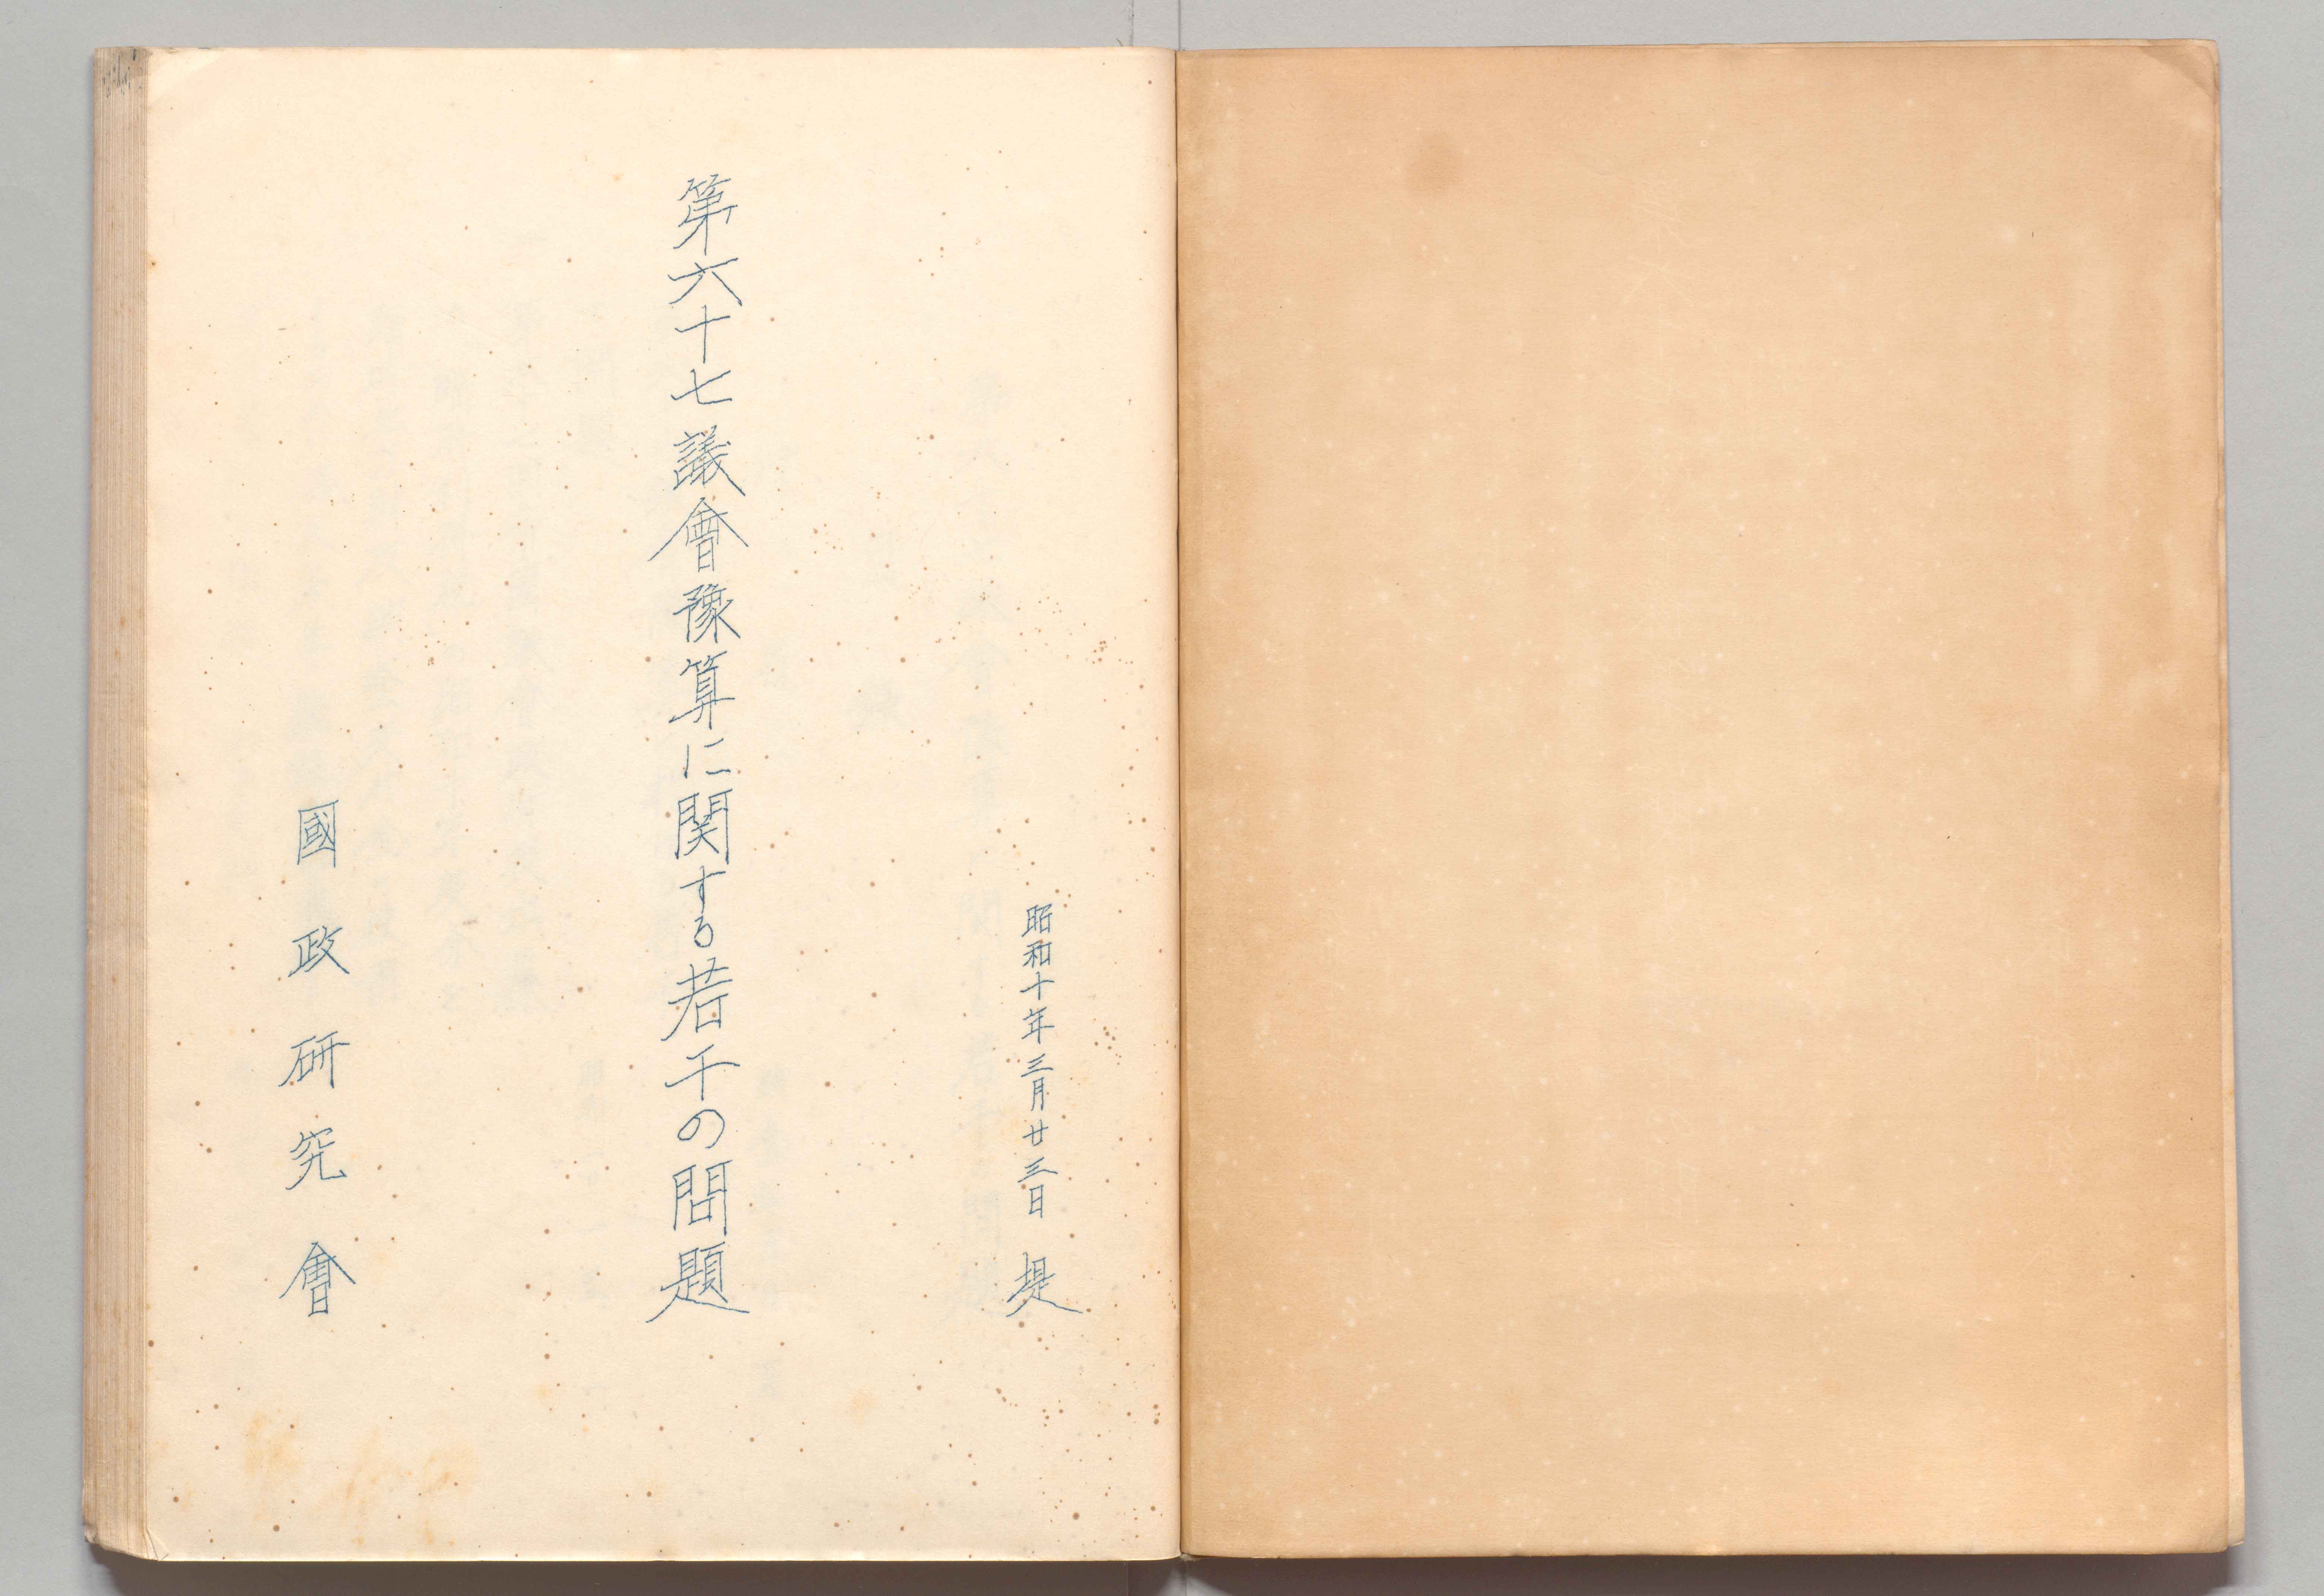 昭和十年三月廿三日 堤
第六十七議會豫算に関する若干の問題
國政研究會